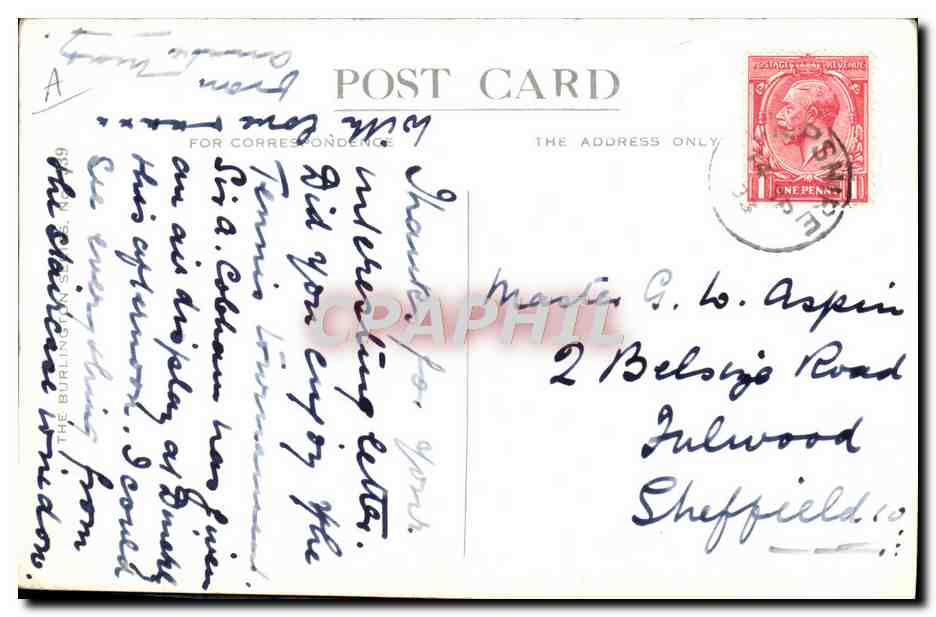 POST CARD
FOR CORRESPONDENCE
THE ADDRESS ONLY
Thanks for your
interesting letter.
Did you enjoy the
Tennis Tournament
Sir A. Cobham has given
an air display at
this afternoon. I could
see everything from
the staircase window.
With love xxxxx
from
A
THE BURLINGTON SERIES. No.
POSTAGE REVENUE
1 ONE PENNY 1
Master G. W. Aspin
2 Belsize Road
Fulwood
Sheffield 10
CPAPHIL